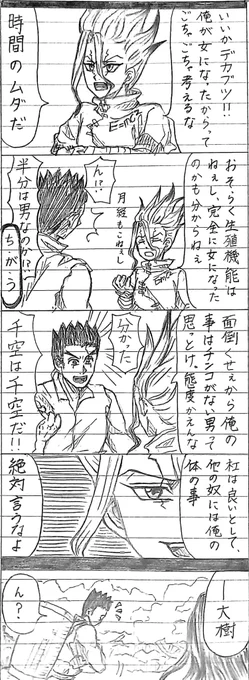 いいかデカブツ!!
俺が女になったからって
ごちゃごちゃ考えるな
時間のムダだ
おそらく生殖機能は
ねぇし、完全に女になった
のかも分からねぇ
月経もこねぇし
ん!?
半分は男なのか!?
ちがう
面倒くせぇから俺の
事はチンコがない男って
思っとけ、態度かえんな
分かった
千空は千空だ!!
杠は良いとして、
他の奴には俺の
体の事
絶対言うなよ
大樹
ん?